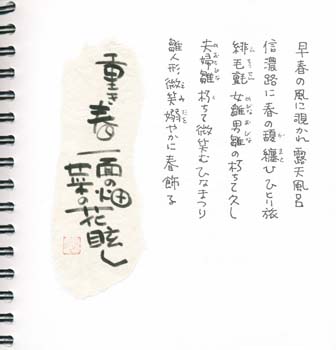 早春の風に覗かれ 露天風呂
信濃路に春の馥纏ひひとり旅
緋毛氈 女雛男雛の朽ちて久し
夫婦雛 朽ちて微笑むひなまつり
雛人形 微笑嫋やかに春飾る
重き春
一面の畑
菜の花眩し